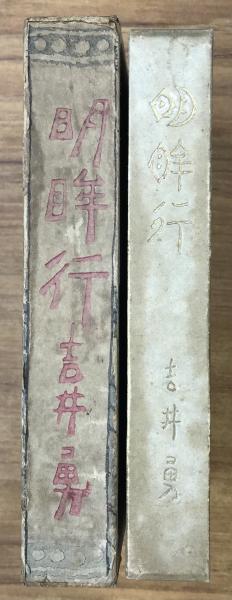 明眸行 吉井勇
明眸行 吉井勇